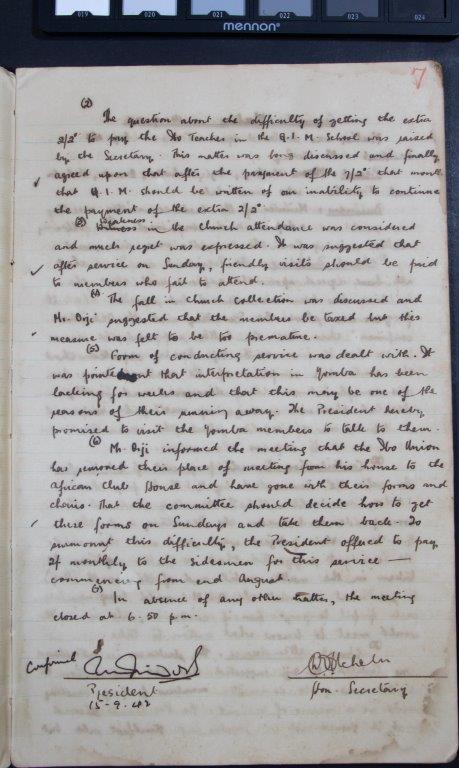 019 020 021 022 023 024
mennon®
7
(2)
The question about the difficulty of getting the extra
2/2ᵈ to pay the Ibo Teacher in the Q.I.M. School was raised
by the Secretary. This matter was being discussed and finally
agreed upon that after the payment of the 7/2ᵈ that month
that Q.I.M. should be written of our inability to continue
the payment of the extra 2/2ᵈ
(3) Weakness in the church attendance was considered
and much regret was expressed. It was suggested that
after service on Sunday, friendly visits should be paid
to members who fail to attend.
(4) The fall in church collection was discussed and
Mr. Orji suggested that the members be taxed but this
measure was felt to be too premature.
(5) Form of conducting service was dealt with. It
was pointed out that interpretation in Yoruba has been
lacking for weeks and that this may be one of the
reasons of their running away. The President hereby
promised to visit the Yoruba members to talk to them.
(6) Mr. Orji informed the meeting that the Ibo Union
has removed their place of meeting from his house to the
African Club House and have gone with their forms and
chairs. That the committee should decide how to get
these forms on Sundays and take them back. To
surmount this difficulty, the President offered to pay
2/- monthly to the Sidesmen for this service —
commencing from end August.
(7) In absence of any other matter, the meeting
closed at 6.50 p.m.
Confirmed
President Hon. Secretary
15-9-42